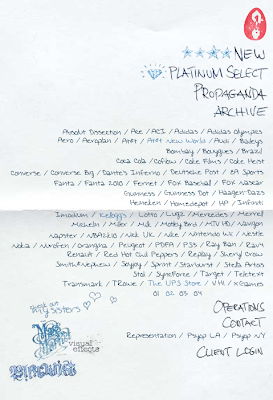 NEW
PLATINUM SELECT
PROPAGANDA
ARCHIVE
Absolut Dissection / Ace / ACI / Adidas / Adidas Olympics
Aero / Aeroplan / AT&T / AT&T New World / Audi / Baileys
Bombay / Bouygues / Brazil
Coca Cola / Cofidow / Coke Films / Coke Heist
Converse / Converse Big / Dante's Inferno / Deutsche Post / EA Sports
Fanta / Fanta 2010 / Fernet / Fox Baseball / Fox Nascar
Guinness / Guinness Dot / Haagen-Dazs
Heineken / Homedepot / HP / Infiniti
Imodium / Kellogg's / Lotto / Lugz / Mercedes / Merrell
Michelin / Miller / Mdl / Motley Bird / MTV HD / Navigon
Napster / NBA2K10 / Net UK / Nike / Nintendo Wii / Nestle
Nokia / Nurofen / Orangina / Peugeot / PDFA / P35 / Ray Ban / Rav4
Renault / Red Hot Chili Peppers / Replay / Sheryl Crow
Smith & Nephew / Soyjoy / Sprint / Starburst / Stella Artois
Stoli / Syneforce / Target / Teletext
Transmark / TRowe / The UPS Store / VH1 / XGames
01 02 03 04
Check out
My Sisters
visual
effects
OPERATIONS
CONTACT
Representation / Psyop LA / Psyop NY
CLIENT LOGIN